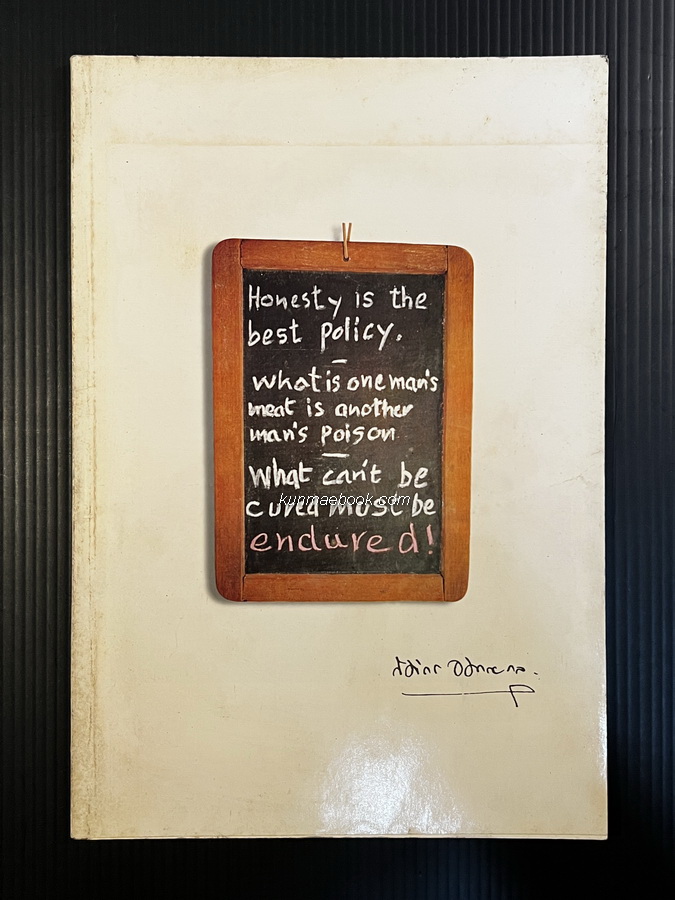 Honesty is the
best policy.
—
what is one man's
meat is another
man's poison
—
What can't be
cured must be
endured!
kunmaebook.com